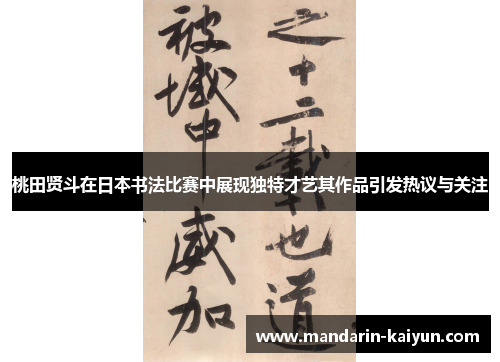 之十二载也道
被域中威加
桃田贤斗在日本书法比赛中展现独特才艺其作品引发热议与关注
www.mandarin-kaiyun.com